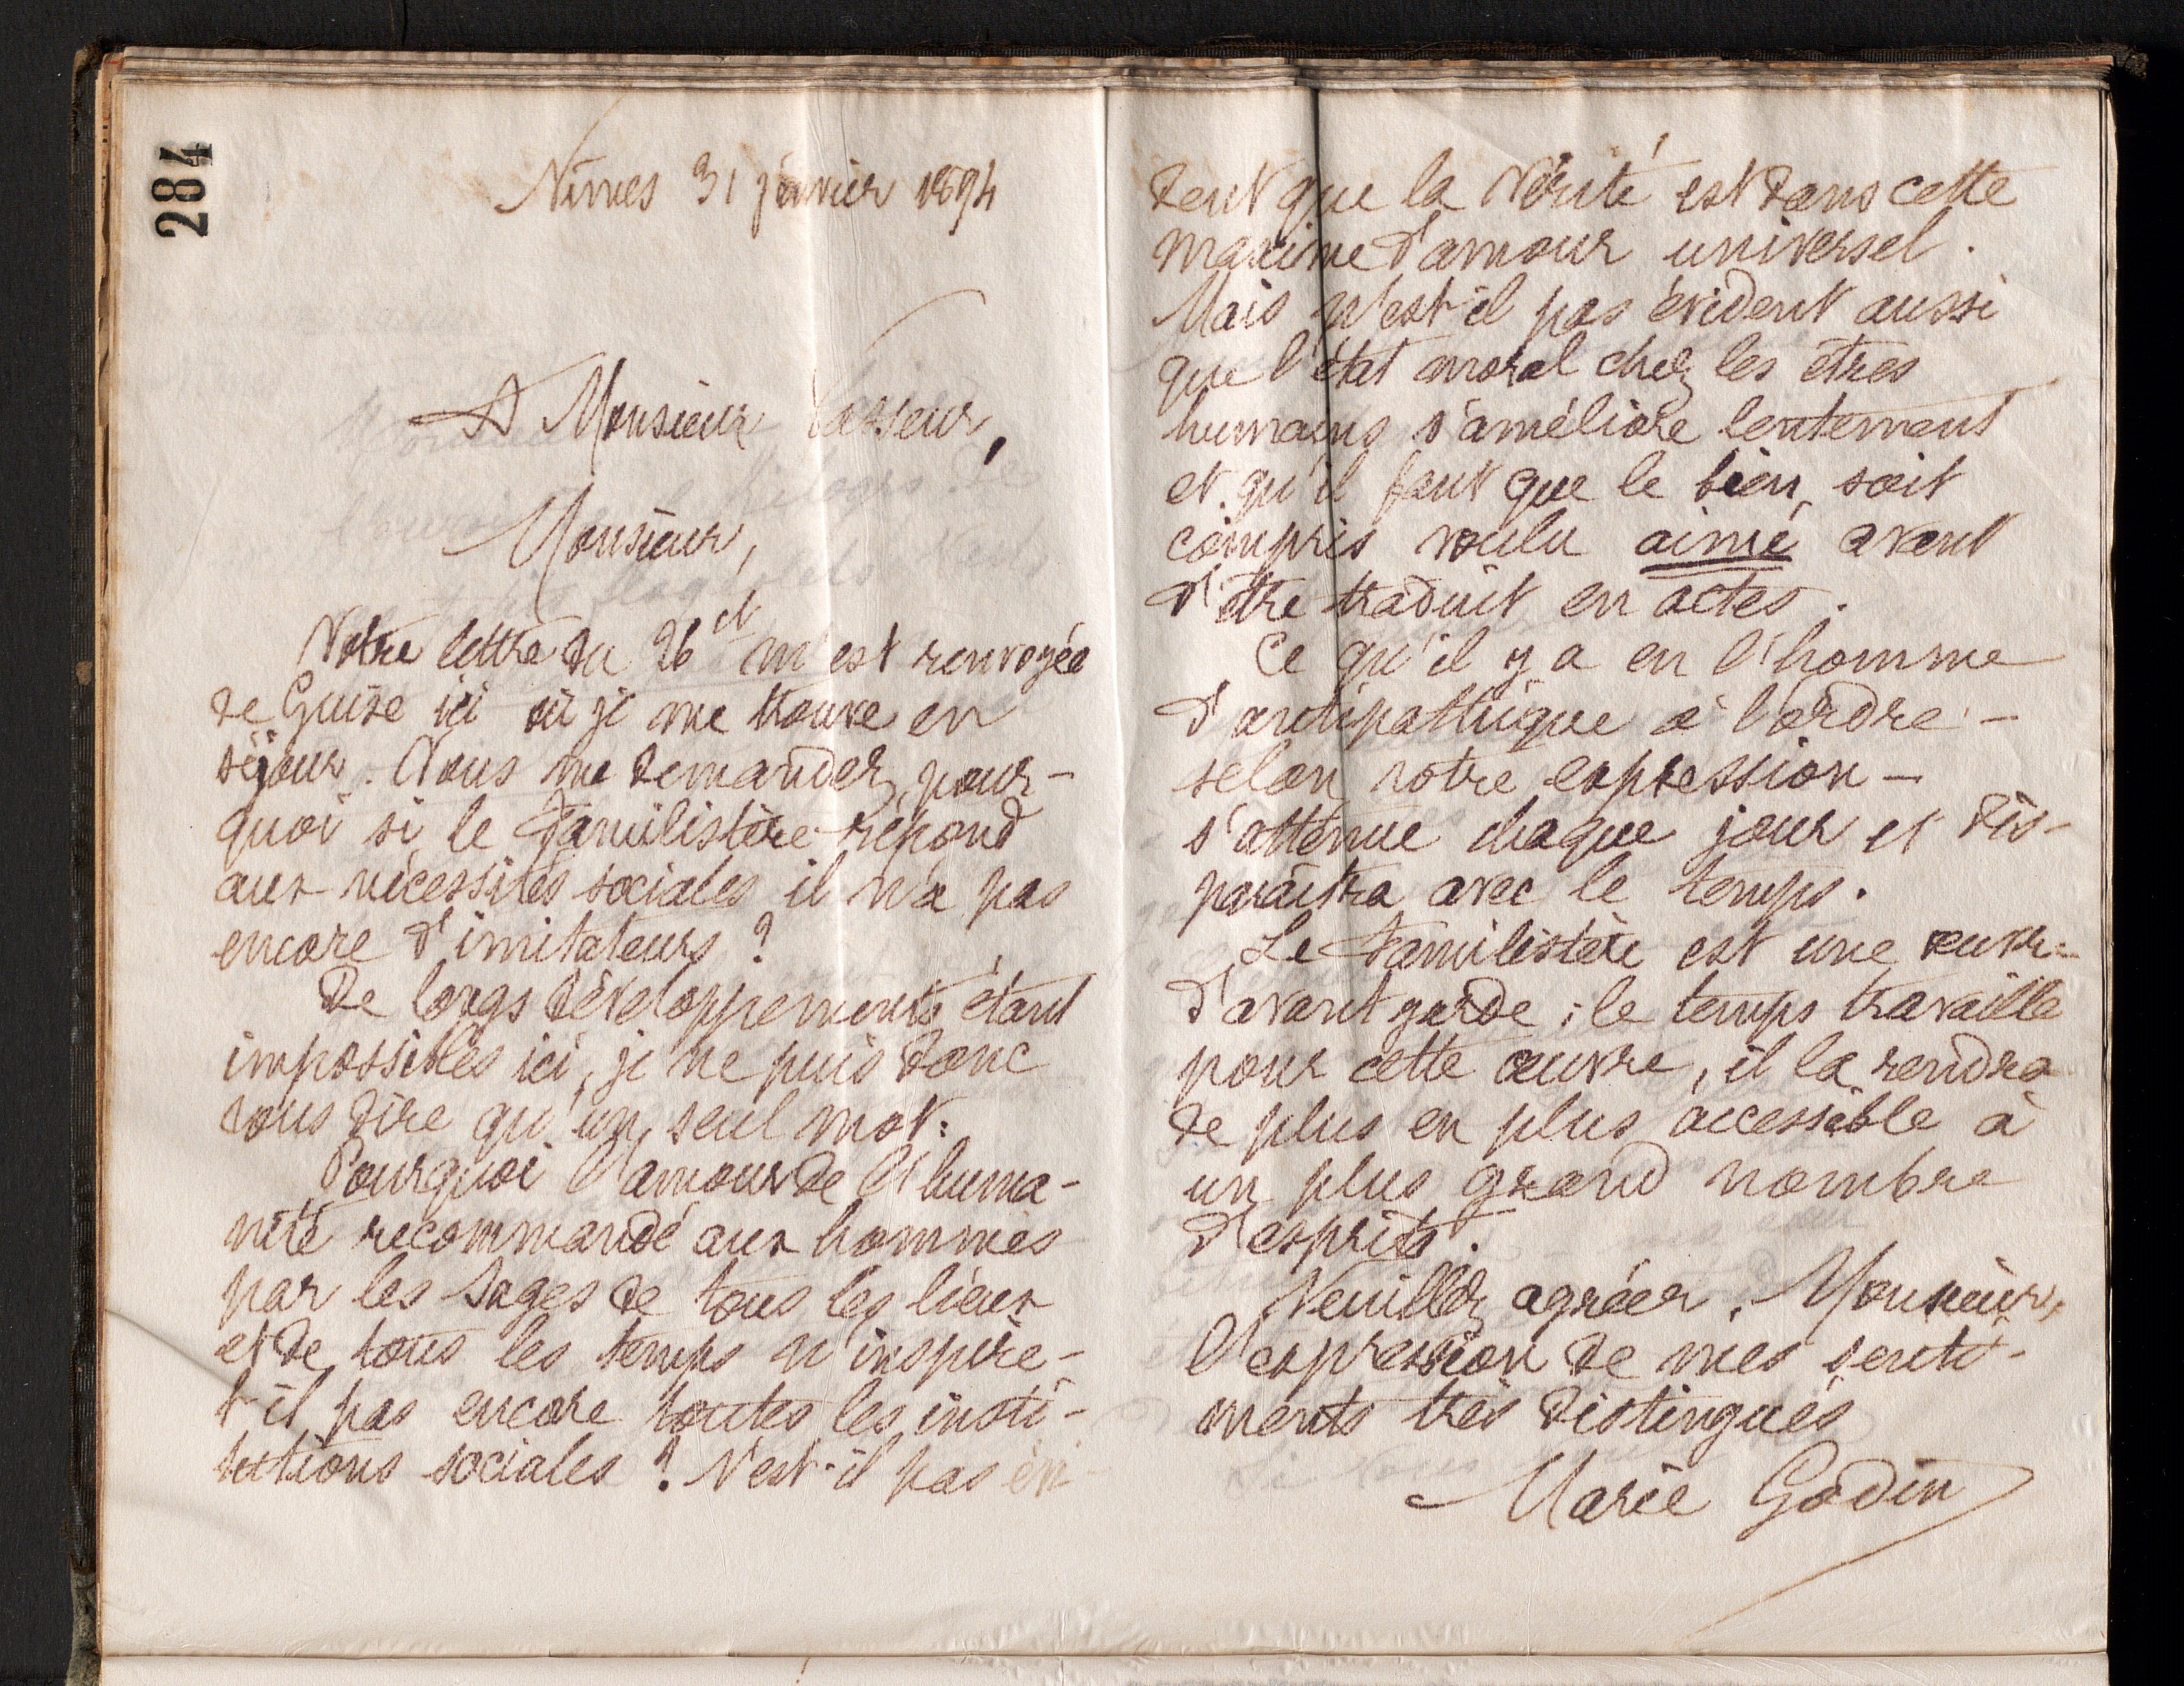 284
Nîmes 31 janvier 1894
A Monsieur Vasseur,
Monsieur,
Votre lettre du 26 ct m'est renvoyée
de Guise ici où je me trouve en
séjour. Vous me demandez pour-
quoi si le Familistère répond
aux nécessités sociales il n'a pas
encore d'imitateurs ?
De longs développements étant
impossibles ici, je ne puis donc
vous dire qu'un seul mot :
Pourquoi l'amour de l'huma-
nité recommandé aux hommes
par les sages de tous les lieux
et de tous les temps n'inspire-
t-il pas encore toutes les insti-
tutions sociales ? N'est-il pas évi
dent que la Vérité est dans cette
maxime d'amour universel.
Mais n'est-il pas évident aussi
que l'état moral chez les êtres
humains s'améliore lentement
et qu'il faut que le bien soit
compris voulu aimé avant
d'être traduit en actes.
Ce qu'il y a en l'homme
d'antipathique à l'ordre -
selon votre expression -
s'atténue chaque jour et dis-
paraîtra avec le temps.
Le Familistère est une œuvre
d'avant garde ; le temps travaille
pour cette œuvre, il la rendra
de plus en plus accessible à
un plus grand nombre
d'esprits.
Veuillez agréer, Monsieur,
l'expression de mes senti-
ments très distingués
Marie Godin